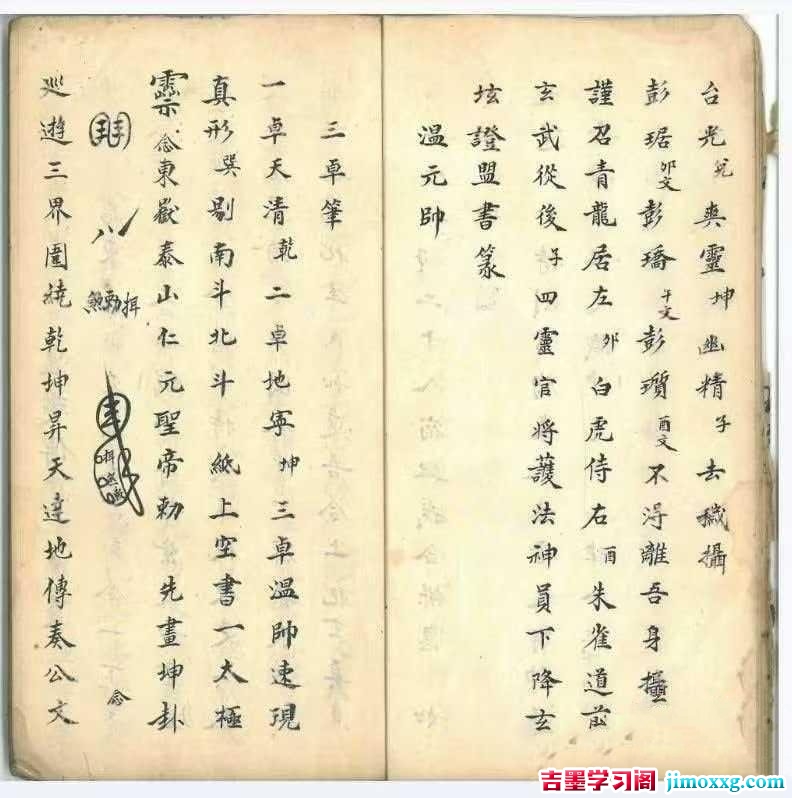 台光兌爽靈坤幽精子去穢攝
彭琚卯文彭璚午文彭瓆酉文不淂離吾身攝
謹召青龍居左卯白虎侍右酉朱雀道前
玄武從後子四靈官將護法神員下降玄
玹證盟書篆
溫元帥
三卓筆
一卓天清乾二卓地寧坤三卓溫帥速現
真形巽剔南斗北斗 紙上空書一太極
念東嶽泰山仁元聖帝勅 先畫坤卦
念
巡遊三界圍繞乾坤昇天達地傳奏公文
吉墨学习阁 jimoxxg.com